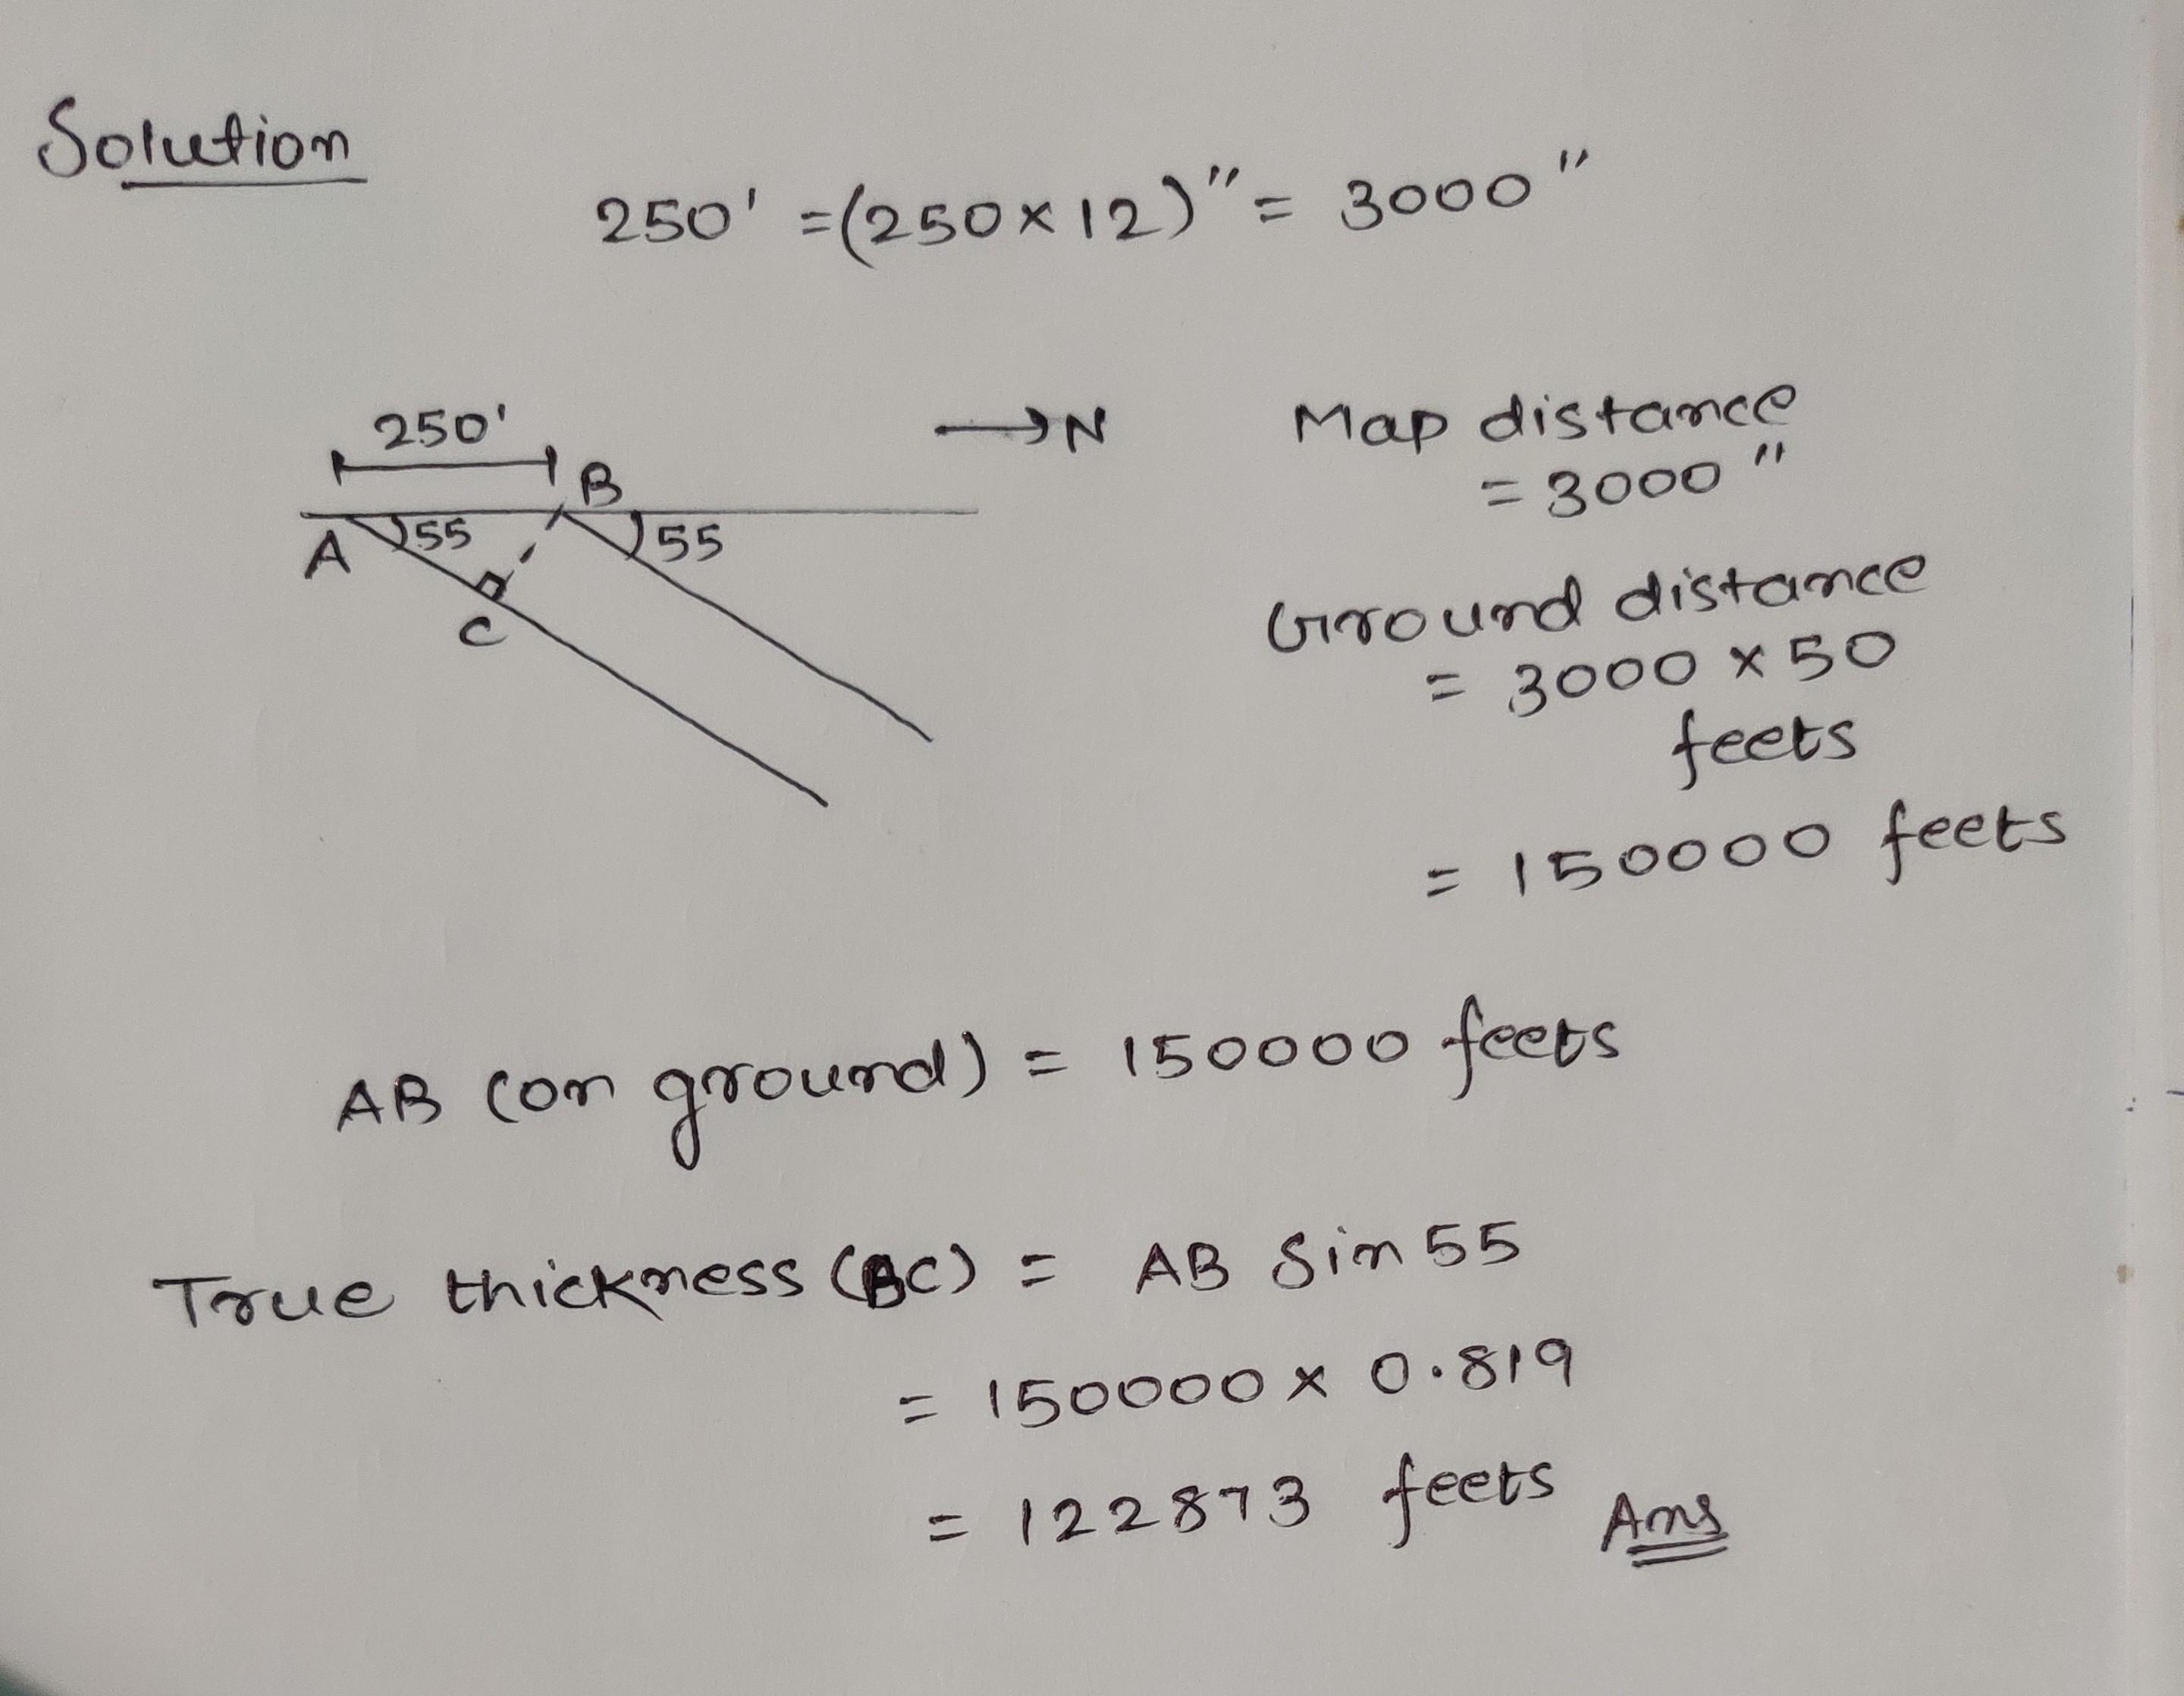 Solution
250' =(250×12)"= 3000"
250'
→N
A
B
55
55
C
Map distance
= 3000"
Ground distance
= 3000 × 50
feets
= 150000 feets
AB (on ground) = 150000 feets
True thickness (BC) = AB Sin 55
= 150000 × 0.819
= 122873 feets Ans